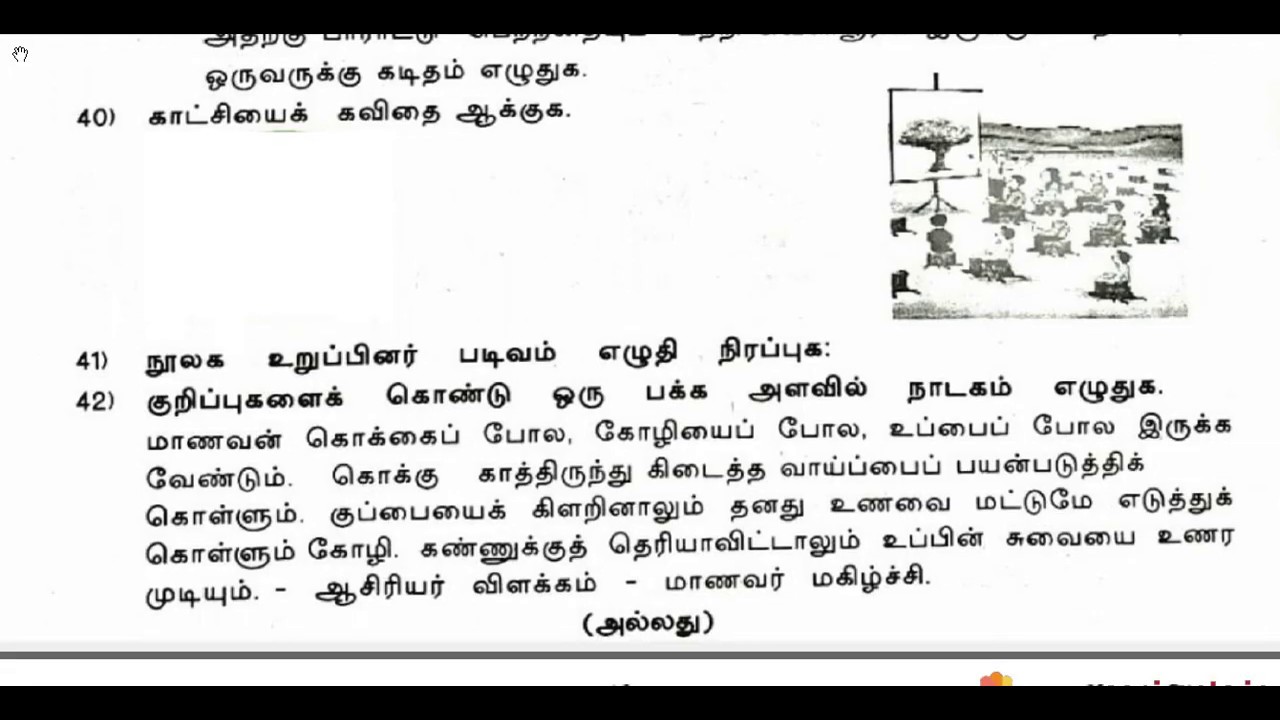 ஒருவருக்கு கடிதம் எழுதுக.
40) காட்சியைக் கவிதை ஆக்குக.
41) நூலக உறுப்பினர் படிவம் எழுதி நிரப்புக:
42) குறிப்புகளைக் கொண்டு ஒரு பக்க அளவில் நாடகம் எழுதுக.
மாணவன் கொக்கைப் போல, கோழியைப் போல, உப்பைப் போல இருக்க
வேண்டும். கொக்கு காத்திருந்து கிடைத்த வாய்ப்பைப் பயன்படுத்திக்
கொள்ளும். குப்பையைக் கிளறினாலும் தனது உணவை மட்டுமே எடுத்துக்
கொள்ளும் கோழி. கண்ணுக்குத் தெரியாவிட்டாலும் உப்பின் சுவையை உணர
முடியும். - ஆசிரியர் விளக்கம் - மாணவர் மகிழ்ச்சி.
(அல்லது)